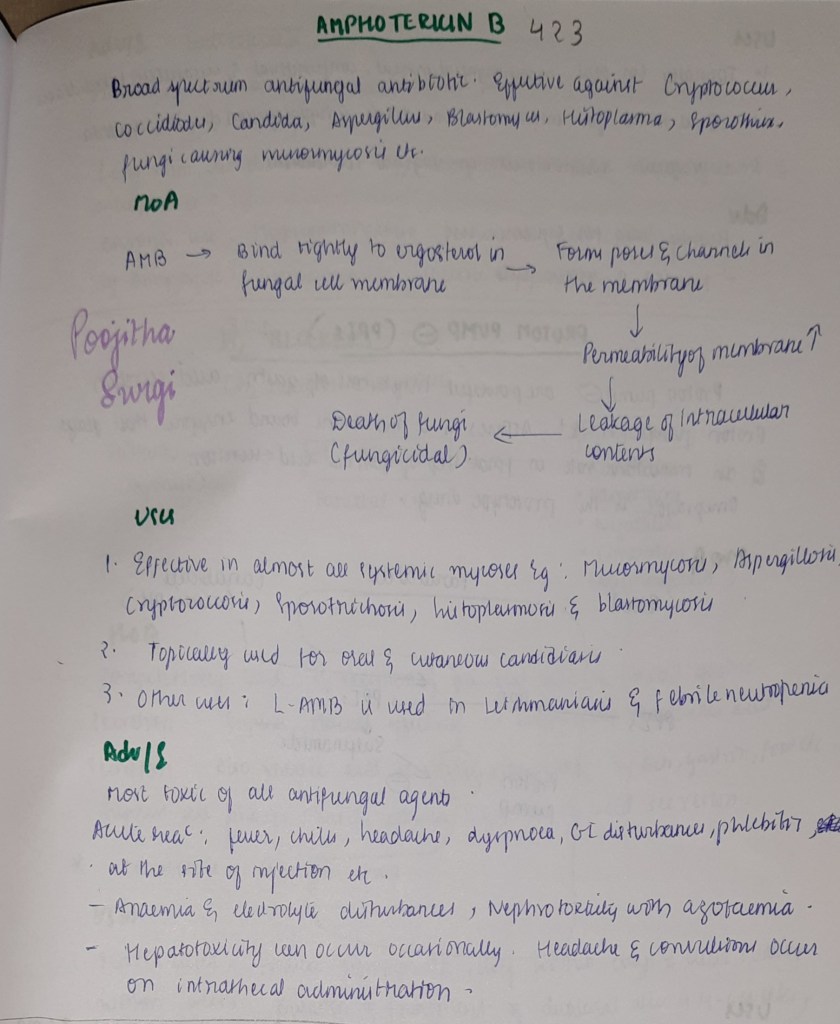 AMPHOTERICIN B 423
Broad spectrum antifungal antibiotic. Effective against Cryptococcus,
Coccidiodes, Candida, Aspergillus, Blastomyces, Histoplasma, Sporothrix,
fungi causing mucormycosis etc.
MOA
AMB → Bind tightly to ergosterol in → Form pores & channels in
fungal cell membrane the membrane
↓
Permeability of membrane ↑
↓
Poojitha
Surgi
Death of fungi ← Leakage of Intracellular
(fungicidal) contents
Uses
1. Effective in almost all systemic mycoses Eg: Mucormycosis, Aspergillosis,
Cryptococcosis, Sporotrichosis, histoplasmosis & blastomycosis
2. Topically used for oral & cutaneous candidiasis.
3. Other uses: L-AMB is used in Leishmaniasis & febrile neutropenia
Adv/E
Most toxic of all antifungal agents.
Acute reacⁿ: fever, chills, headache, dyspnoea, GI disturbances, phlebitis,
at the site of injection etc.
- Anaemia & electrolyte disturbances, Nephrotoxicity with azotaemia.
- Hepatotoxicity can occur occasionally. Headache & convulsions occur
on intrathecal administration.